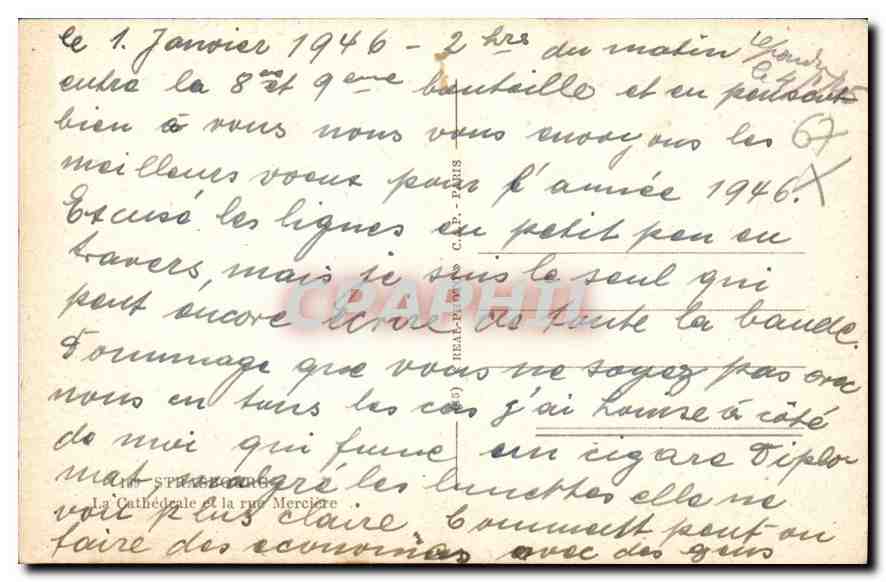 le 1. Janvier 1946 - 2 hrs du matin
entre la 8me et 9eme bouteille et en pensant
bien à vous nous vous envoyons les 67
meilleurs voeux pour l'année 1946.
Excusé les lignes en petit peu en
travers, mais je suis le seul qui
peut encore écrire de toute la bande.
Dommage que vous ne soyez pas avec
nous en tous les cas j'ai Louise à côté
de moi qui fume un cigare Diplo-
mat, malgré les lunettes elle ne
voit plus claire. Comment peut-on
faire des economies avec des gens
REAL-PHOTO C.A.P. - PARIS
CPAPHIL
STRASBOURG
La Cathédrale et la rue Mercière